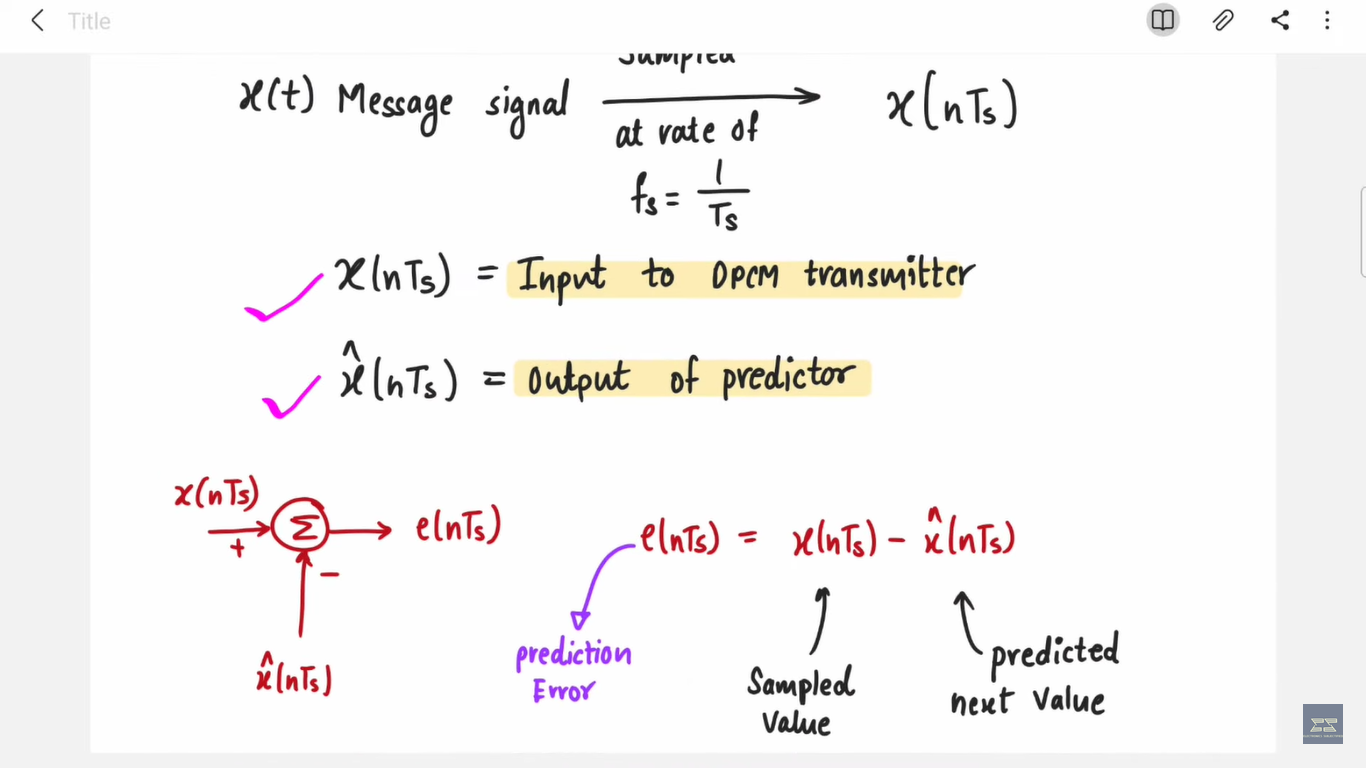 Title
Sampled
x(t) Message signal → x(nTs)
at rate of
fs = 1/Ts
x(nTs) = Input to DPCM transmitter
x̂(nTs) = Output of predictor
x(nTs)
+
Σ
e(nTs)
−
x̂(nTs)
e(nTs) = x(nTs) − x̂(nTs)
prediction
Error
Sampled
Value
predicted
next Value